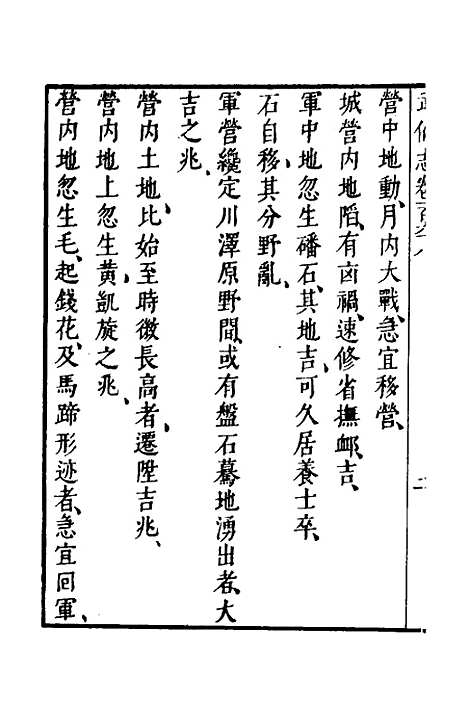 營中地動、月內大戰、急宜移營、
城營內地陷、有凾禍、速修省撫卹、吉、
軍中地忽生磻石、其地吉、可久居養士卒、
石自移、其分野亂、
軍營纔定川澤原野間、或有盤石驀地湧出者、大
吉之兆、
營內土地、比始至時微長高者、遷陞吉兆、
營內地上忽生黃、凱旋之兆、
營內地忽生毛、起錢花、及馬蹄形迹者、急宜回軍、